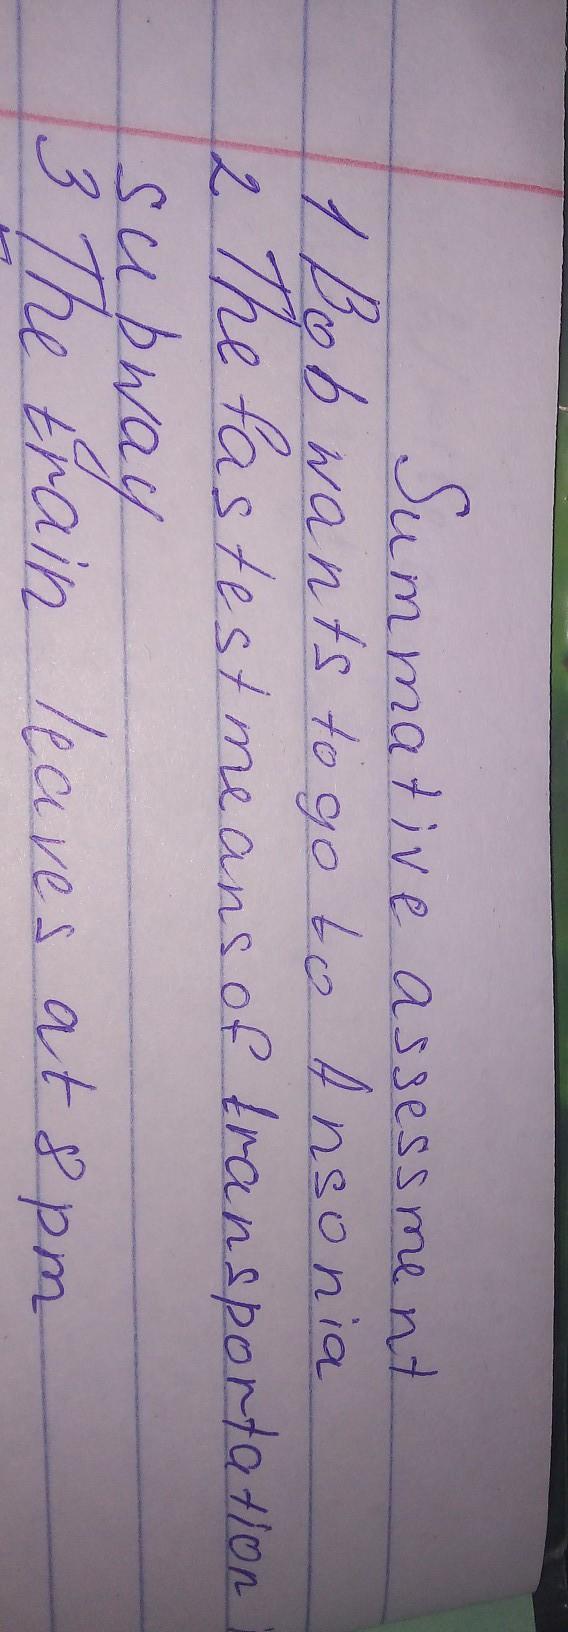 Summative assessment
1 Bob wants to go to Ansonia
2 The fastest means of transportation
subway
3 The train leaves at 8 pm